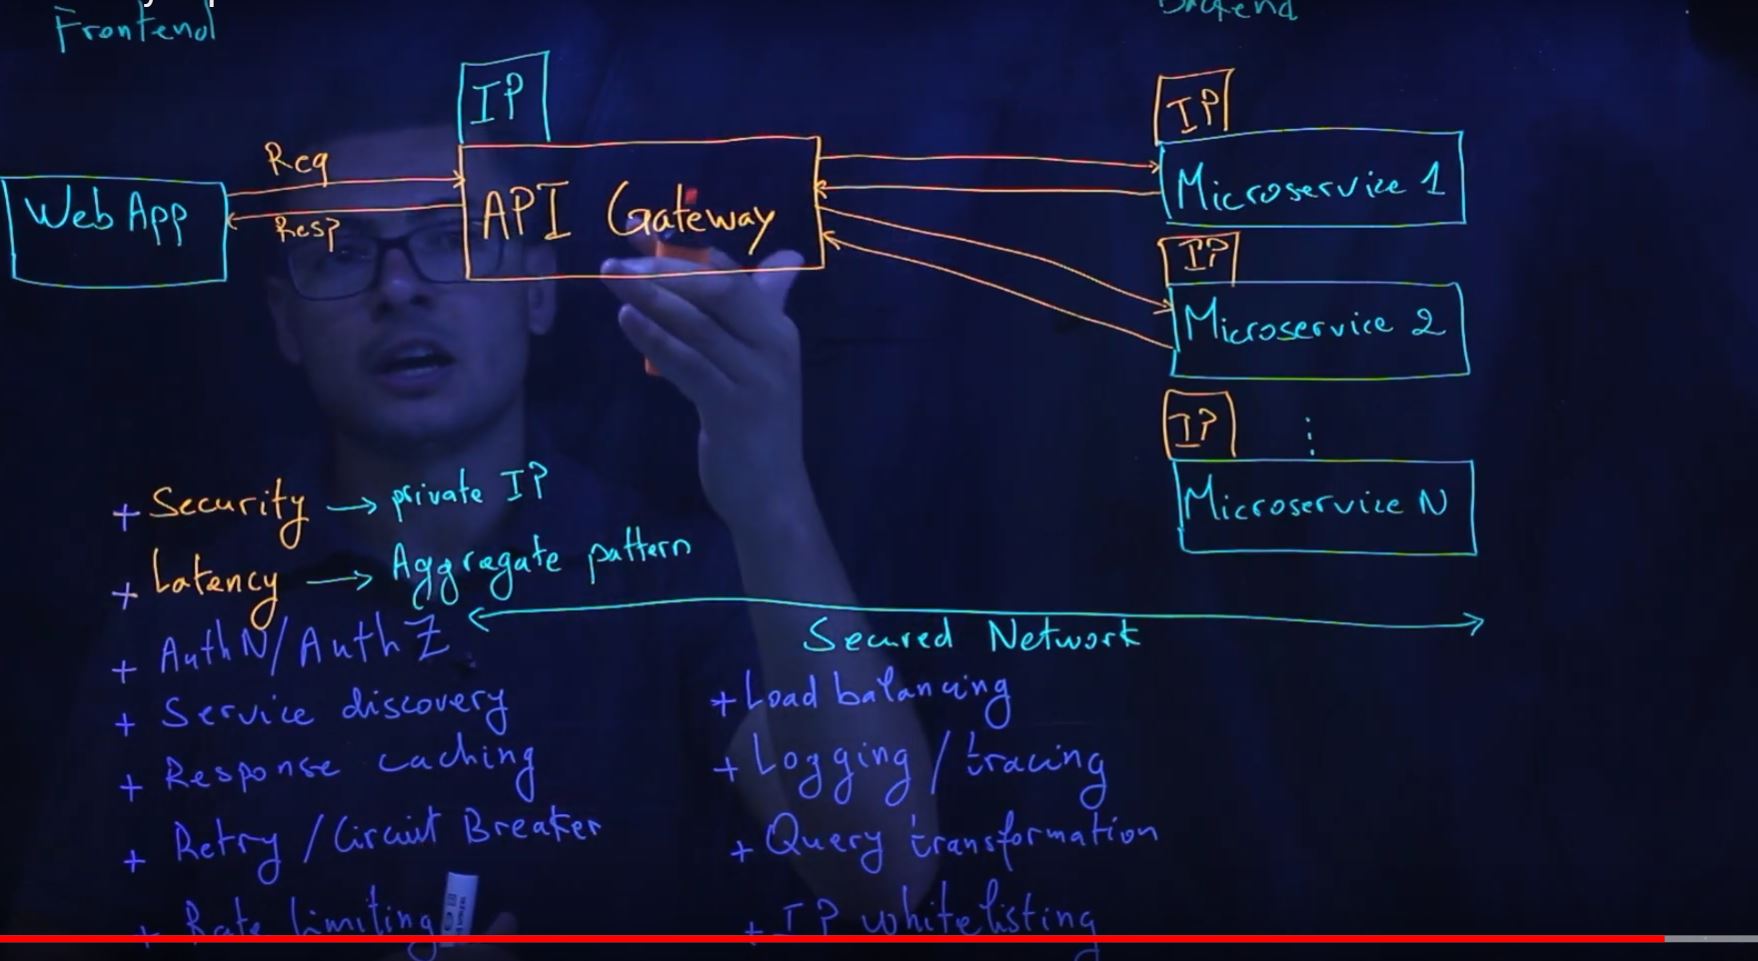 Frontend
Backend
IP
IP
Req
API Gateway
Microservice 1
Web App
Resp
IP
Microservice 2
IP
⋮
Microservice N
+ Security → private IP
+ Latency → Aggregate pattern
Secured Network
+ AuthN/AuthZ
+ Service discovery
+ Response caching
+ Retry / Circuit Breaker
+ Rate limiting
+ Load balancing
+ Logging / tracing
+ Query transformation
+ IP whitelisting